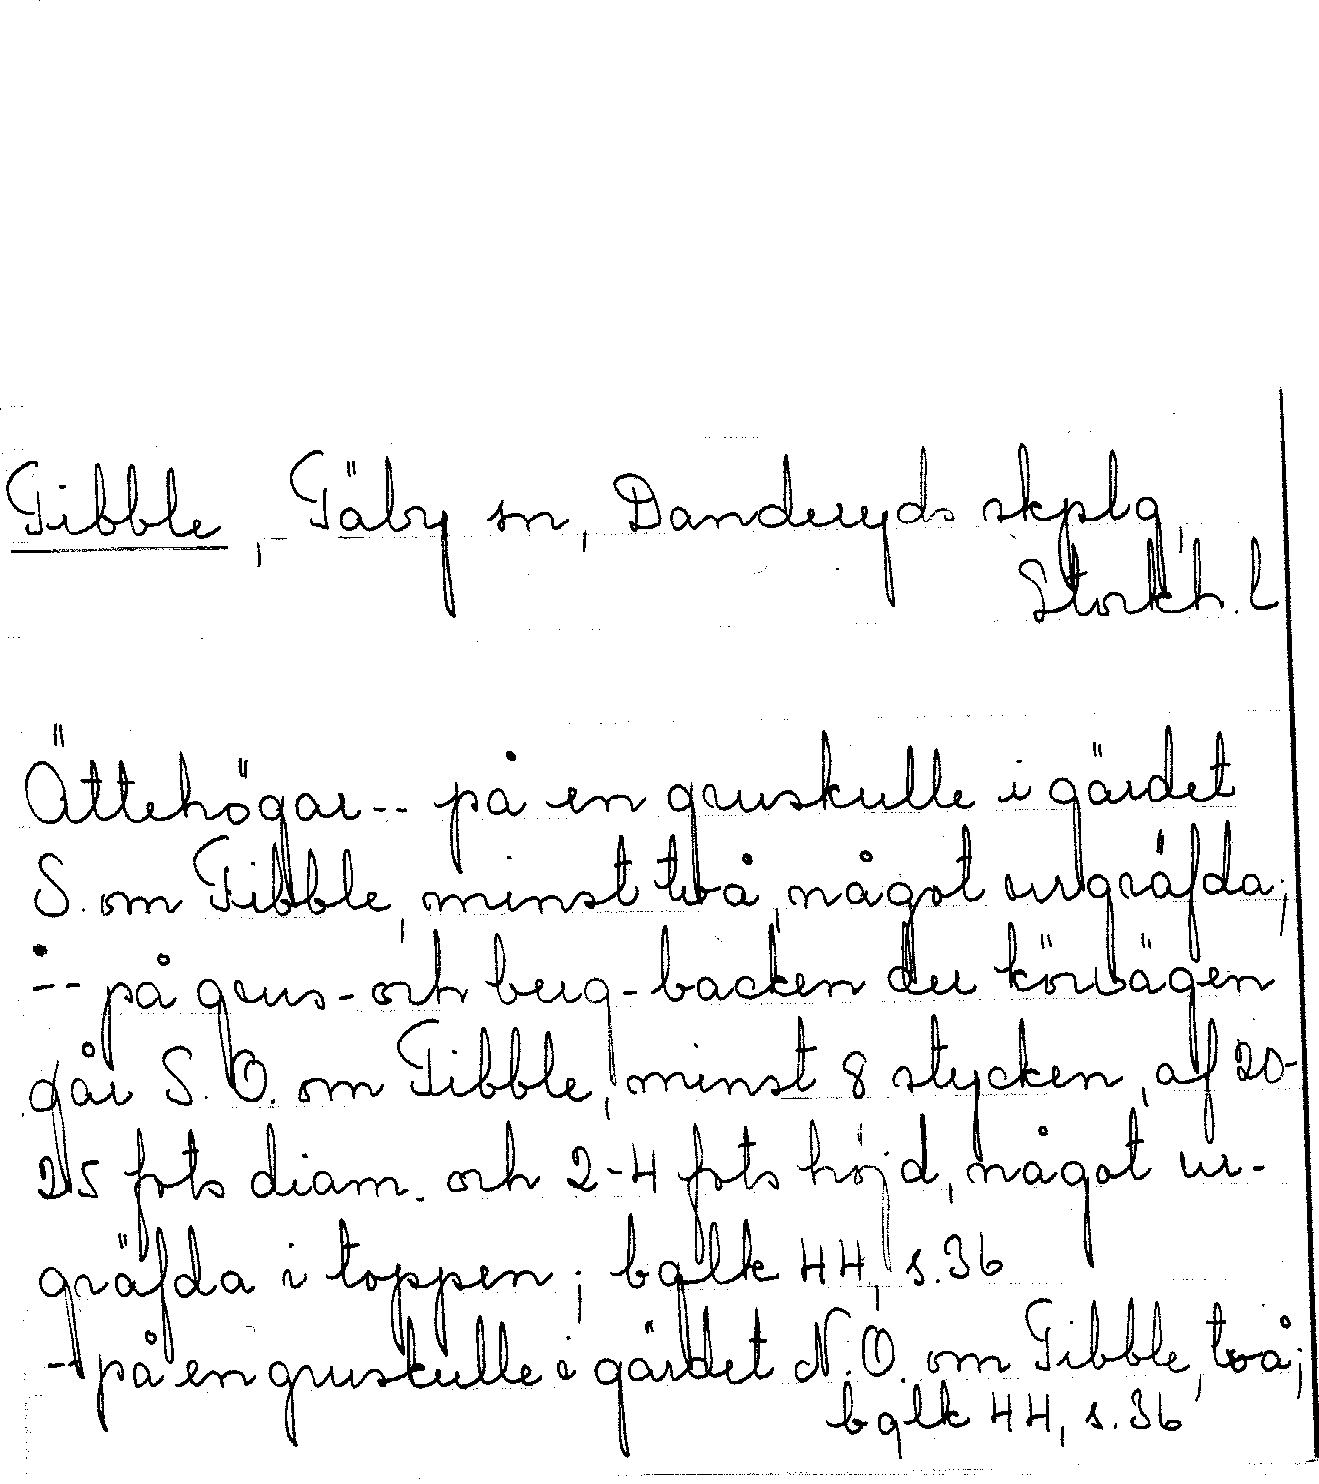 Tibble, Täby sn, Danderyds skplg,
Stockh. L
Ättehögar-- på en gruskulle i gärdet
S. om Tibble, minst två, något urgräfda;
-- på grus- och berg-backen der körvägen
går S.O. om Tibble, minst 8 stycken, af 20-
25 fots diam. och 2-4 fots höjd, något ur-
gräfda i toppen; bglk 44, s.36
-- på en gruskulle i gärdet N.O. om Tibble, två;
bglk 44, s.36